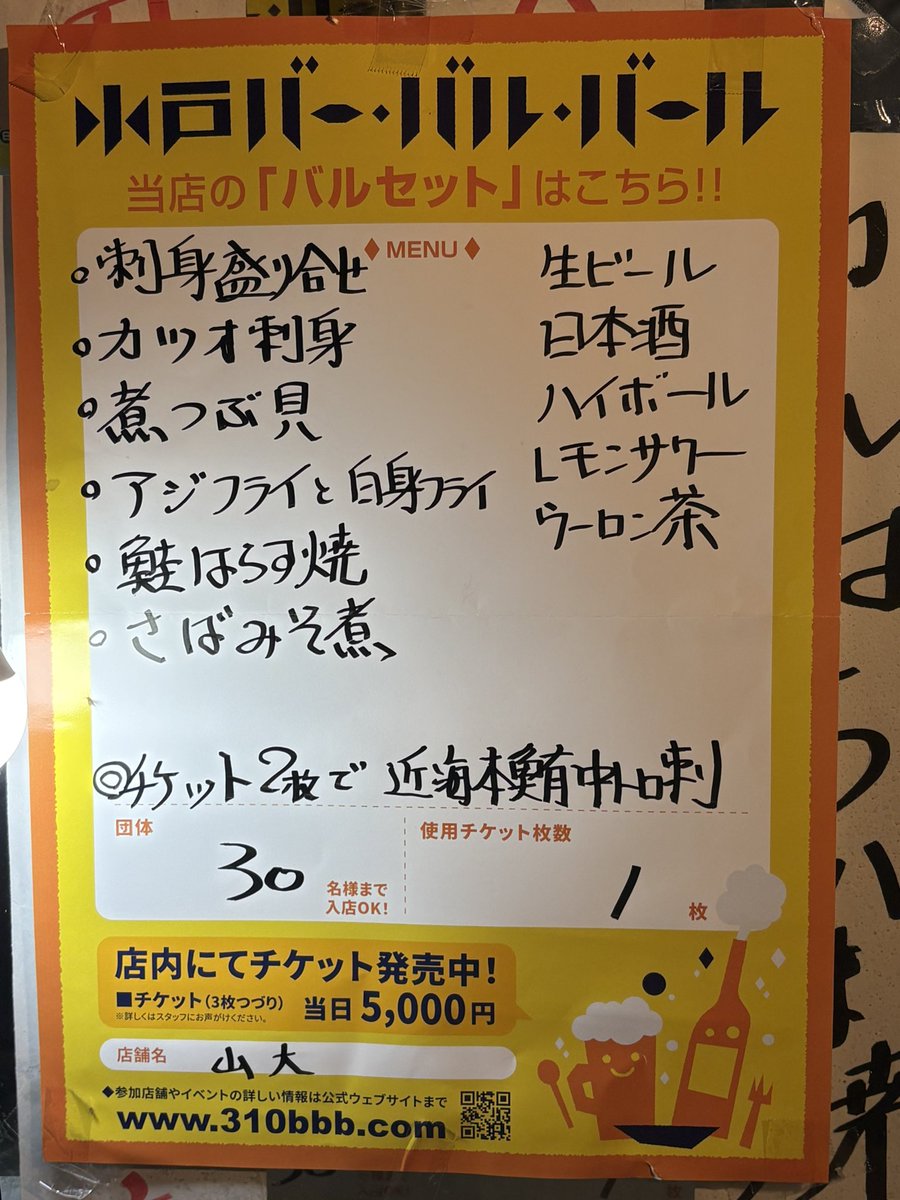 水戸バー・バル・バール
当店の「バルセット」はこちら!!
♦MENU♦
○刺身盛り合せ
○カツオ刺身
○煮つぶ貝
○アジフライと白身フライ
○鮭はらす焼
○さばみそ煮
生ビール
日本酒
ハイボール
レモンサワー
ウーロン茶
◎チケット2枚で 近海本鮪中トロ刺
団体
30
名様まで
入店OK!
使用チケット枚数
1
枚
店内にてチケット発売中!
■チケット(3枚つづり) 当日5,000円
※詳しくはスタッフにお声がけください。
店舗名
山大
◆参加店舗やイベントの詳しい情報は公式ウェブサイトまで
www.310bbb.com